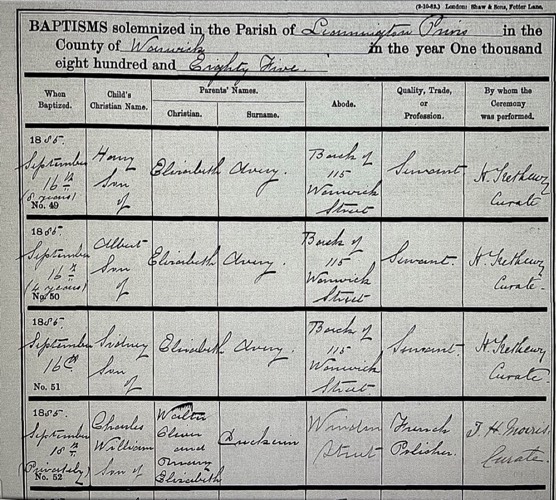 (2-10-83.) London: Shaw & Sons, Fetter Lane.
BAPTISMS solemnized in the Parish of Leamington Priors in the
County of Warwick in the year One thousand
eight hundred and Eighty Five.
When Baptized. Child's Christian Name. Parents' Names. Abode. Quality, Trade, or Profession. By whom the Ceremony was performed.
Christian. Surname.
1885.
September
16th
(8 years)
No. 49
Harry
Son
of
Elizabeth
Avery.
Back of
115
Warwick
Street
Servant.
Curate
1885
September
16th
(4 years)
No. 50
Albert
Son
of
Elizabeth
Avery.
Back of
115
Warwick
Street
Servant.
Curate.
1885.
September
16th
No. 51
Sidney
Son
of
Elizabeth
Avery.
Back of
115
Warwick
Street.
Servant.
Curate
1885.
September
18th
(Privately)
No. 52
Charles
William
Son of
Walter
and
Elizabeth
Street
French
Polisher.
J. H. Morris
Curate.